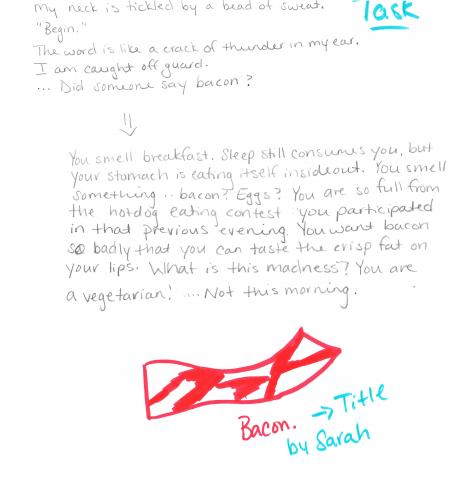 My neck is tickled by a bead of sweat.
Task
"Begin."
The word is like a crack of thunder in my ear.
I am caught off guard.
... Did someone say bacon?
⇓
You smell breakfast. Sleep still consumes you, but
your stomach is eating itself insideout. You smell
something .. bacon? Eggs? You are so full from
the hotdog eating contest you participated
in that previous evening. You want bacon
so badly that you can taste the crisp fat on
your lips. What is this madness? You are
a vegetarian! ....Not this morning.
Bacon. → Title
by Sarah